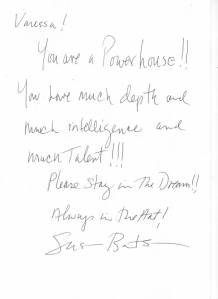 Vanessa!
You are a Powerhouse!!
You have much depth and
much intelligence and
much Talent!!!
Please Stay in The Dream!!
Always in the